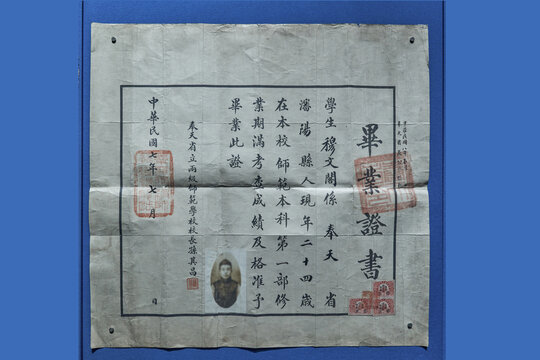 畢業證書
學生穆文閣係奉天省
瀋陽縣人現年二十四歲
在本校師範本科第一部修
業期滿考查成績及格准予
畢業此證
奉天省立兩級師範學校校長孫其昌
中華民國七年七月 日